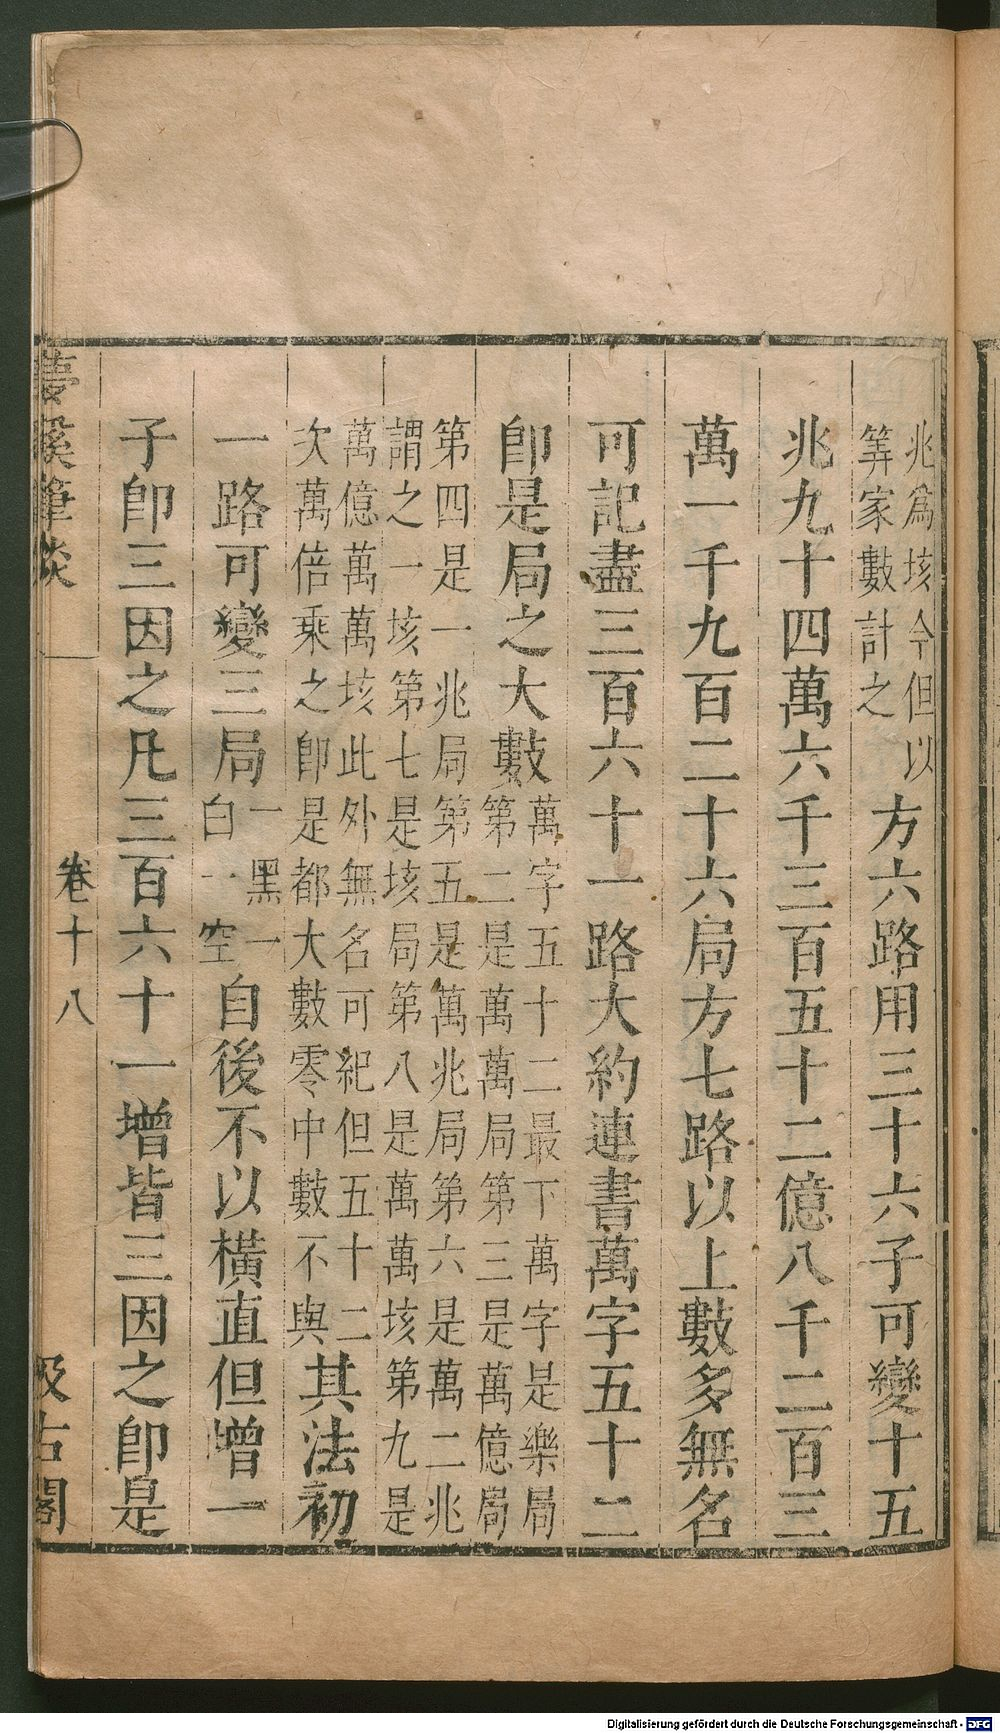 兆爲垓今但以
筭家數計之
方六路用三十六子可變十五
兆九十四萬六千三百五十二億八千二百三
萬一千九百二十六局方七路以上數多無名
可記盡三百六十一路大約連書萬字五十二
卽是局之大數
萬字五十二最下萬字是樂局
第二是萬萬局第三是萬億局
第四是一兆局第五是萬兆局第六是萬二兆
謂之一垓第七是垓局第八是萬萬垓第九是
萬億萬萬垓此外無名可紀但五十二
次萬倍乘之卽是都大數零中數不與
其法初
一路可變三局
一黑一
白一空
自後不以橫直但增一
子卽三因之凡三百六十一增皆三因之卽是
夢溪筆談
卷十八
汲古閣
Digitalisierung gefördert durch die Deutsche Forschungsgemeinschaft - DFG